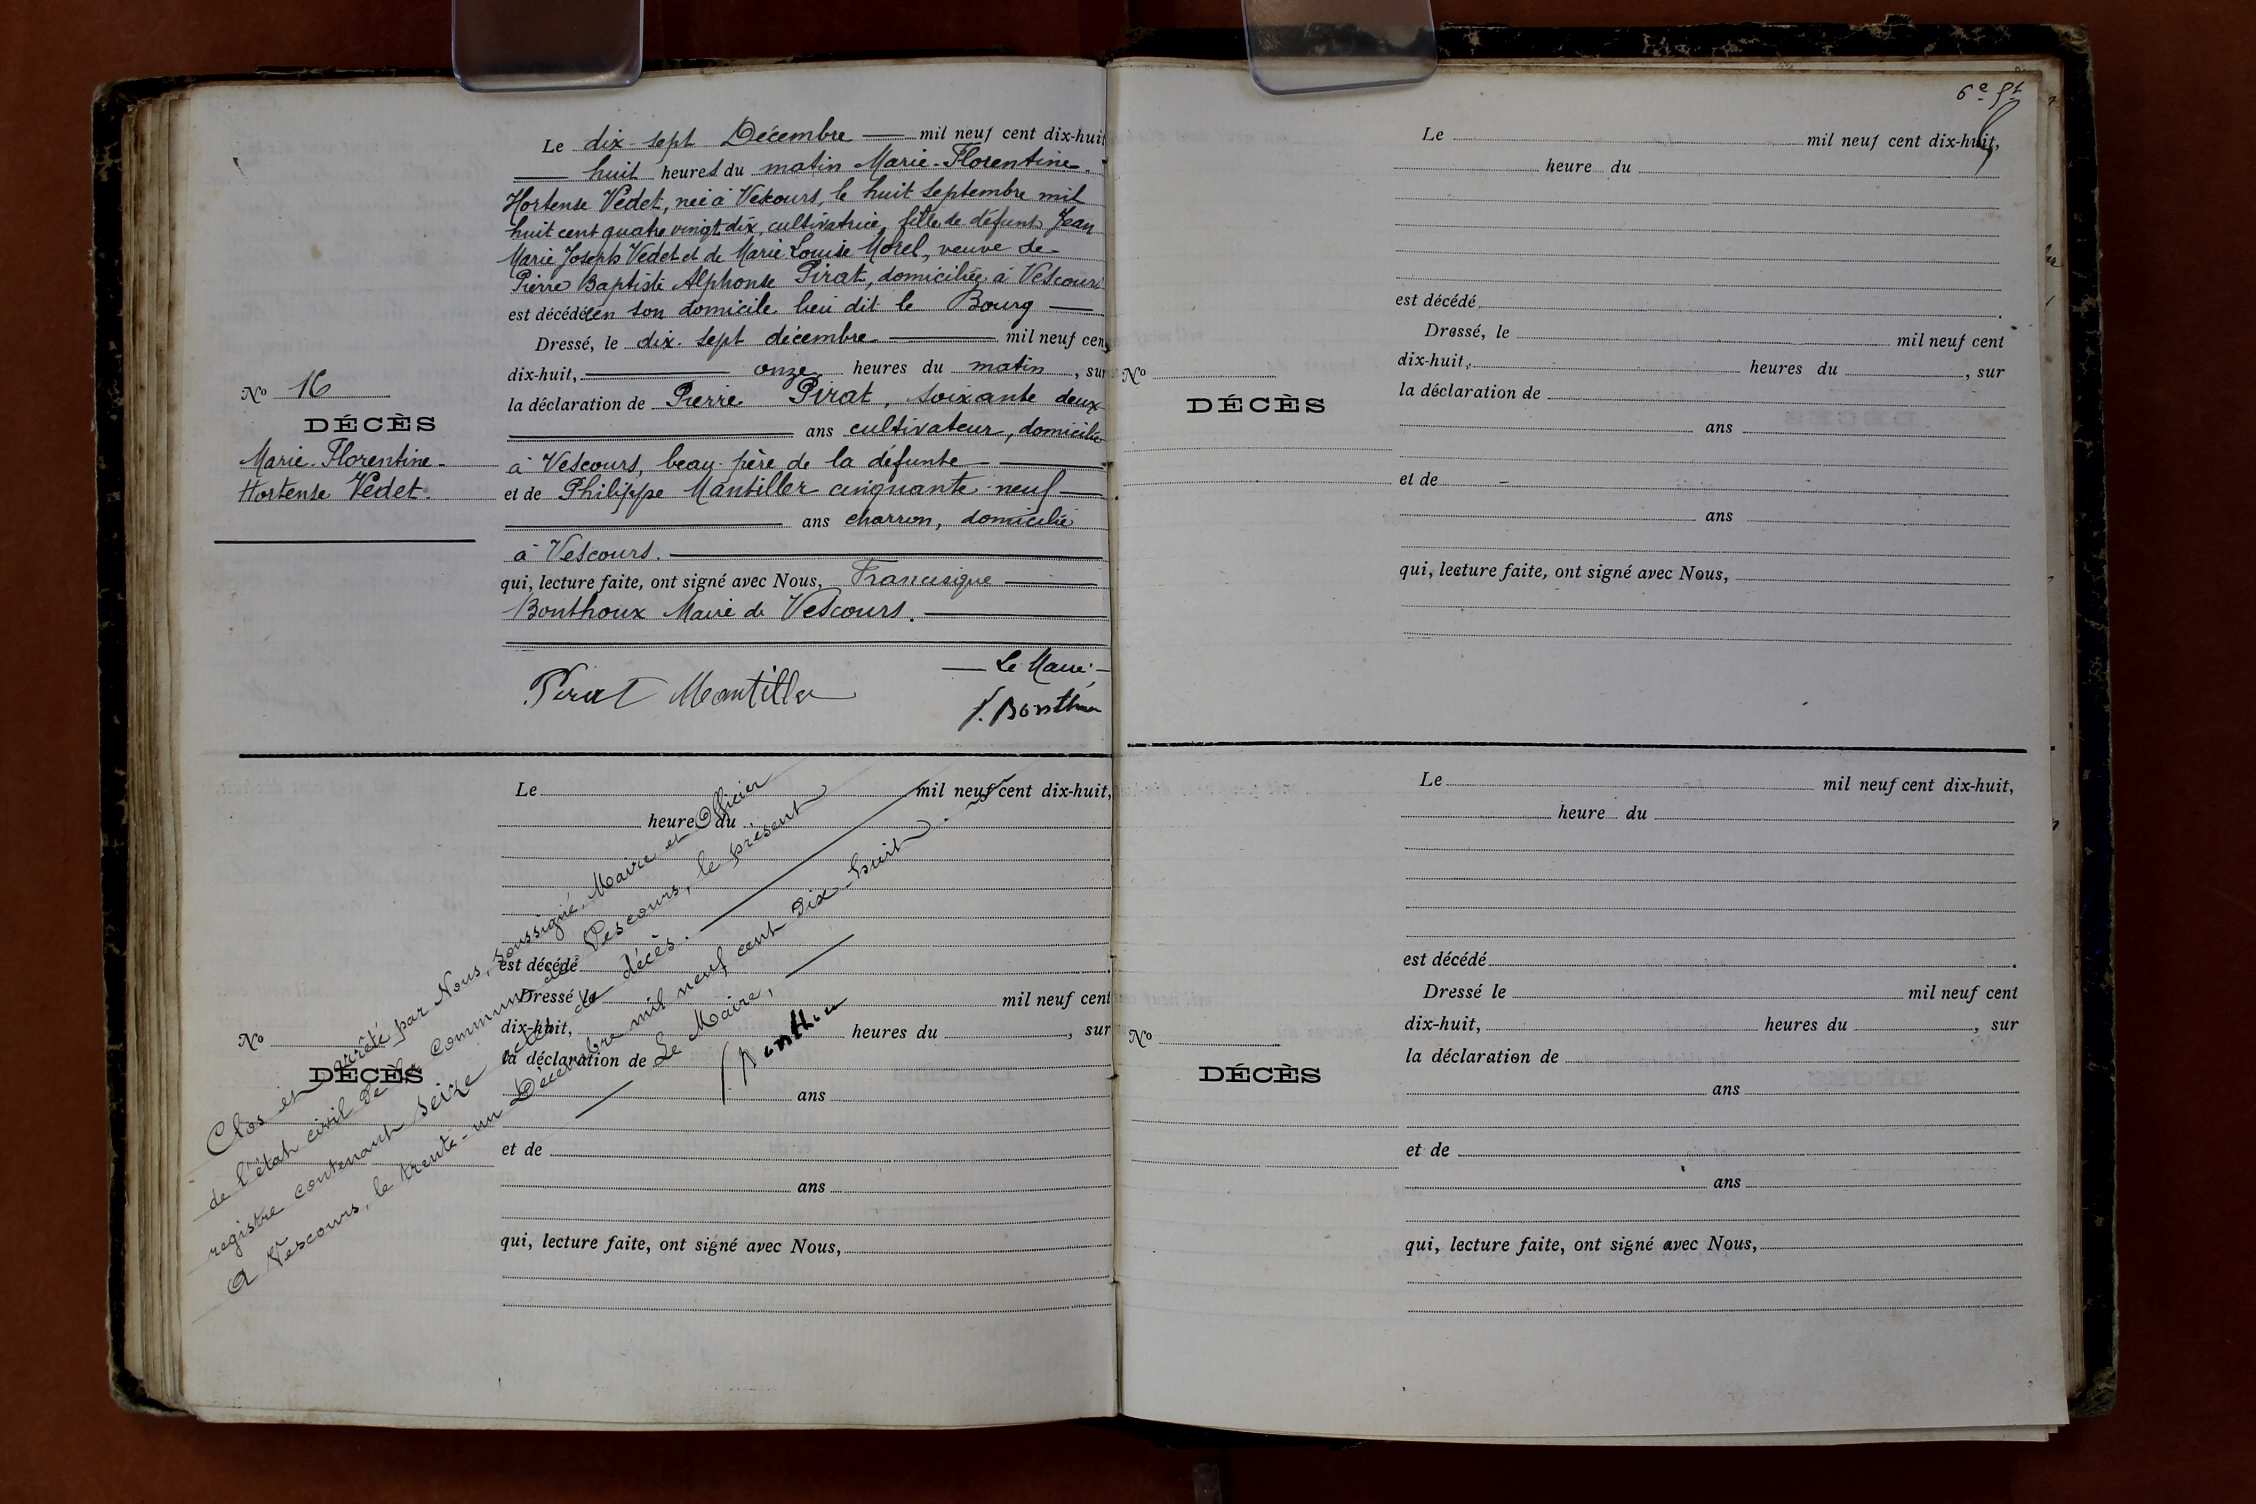 Le dix-sept Décembre mil neuf cent dix-huit
huit heures du matin Marie-Florentine
Hortense Vedet, née à Vescours, le huit Septembre mil
huit cent quatre vingt dix, cultivatrice, fille de défunts Jean
Marie Joseph Vedet et de Marie Louise Morel, veuve de
Pierre Baptiste Alphonse Pirat, domiciliée à Vescours
est décédée en son domicile lieu dit le Bourg
Dressé, le dix-sept décembre mil neuf cent
dix-huit, onze heures du matin, sur
No 16
la déclaration de Pierre Pirat, soixante deux
DÉCÈS
ans cultivateur, domicilié
Marie-Florentine-
à Vescours, beau-père de la défunte
Hortense Vedet.
et de Philippe Mantiller cinquante-neuf
ans charron, domicilié
à Vescours.
qui, lecture faite, ont signé avec Nous, Francisque
Bonthoux Maire de Vescours.
Le Maire,
Pirat Mantiller
f. Bonthoux
Le mil neuf cent dix-huit,
heure du
est décédé
Dressé le mil neuf cent
dix-huit, heures du , sur
No
la déclaration de
DÉCÈS
ans
et de
ans
qui, lecture faite, ont signé avec Nous,
Clos et arrêté par Nous, soussigné, Maire et Officier
de l'état civil de la commune de Vescours, le présent
registre contenant seize actes de décès.
A Vescours, le trente-un Décembre mil neuf cent dix-huit.
Le Maire,
f. Bonthoux
6e
Le mil neuf cent dix-huit,
heure du
est décédé
Dressé, le mil neuf cent
dix-huit, heures du , sur
No
la déclaration de
DÉCÈS
ans
et de
ans
qui, lecture faite, ont signé avec Nous,
Le mil neuf cent dix-huit,
heure du
est décédé
Dressé le mil neuf cent
dix-huit, heures du , sur
No
la déclaration de
DÉCÈS
ans
et de
ans
qui, lecture faite, ont signé avec Nous,